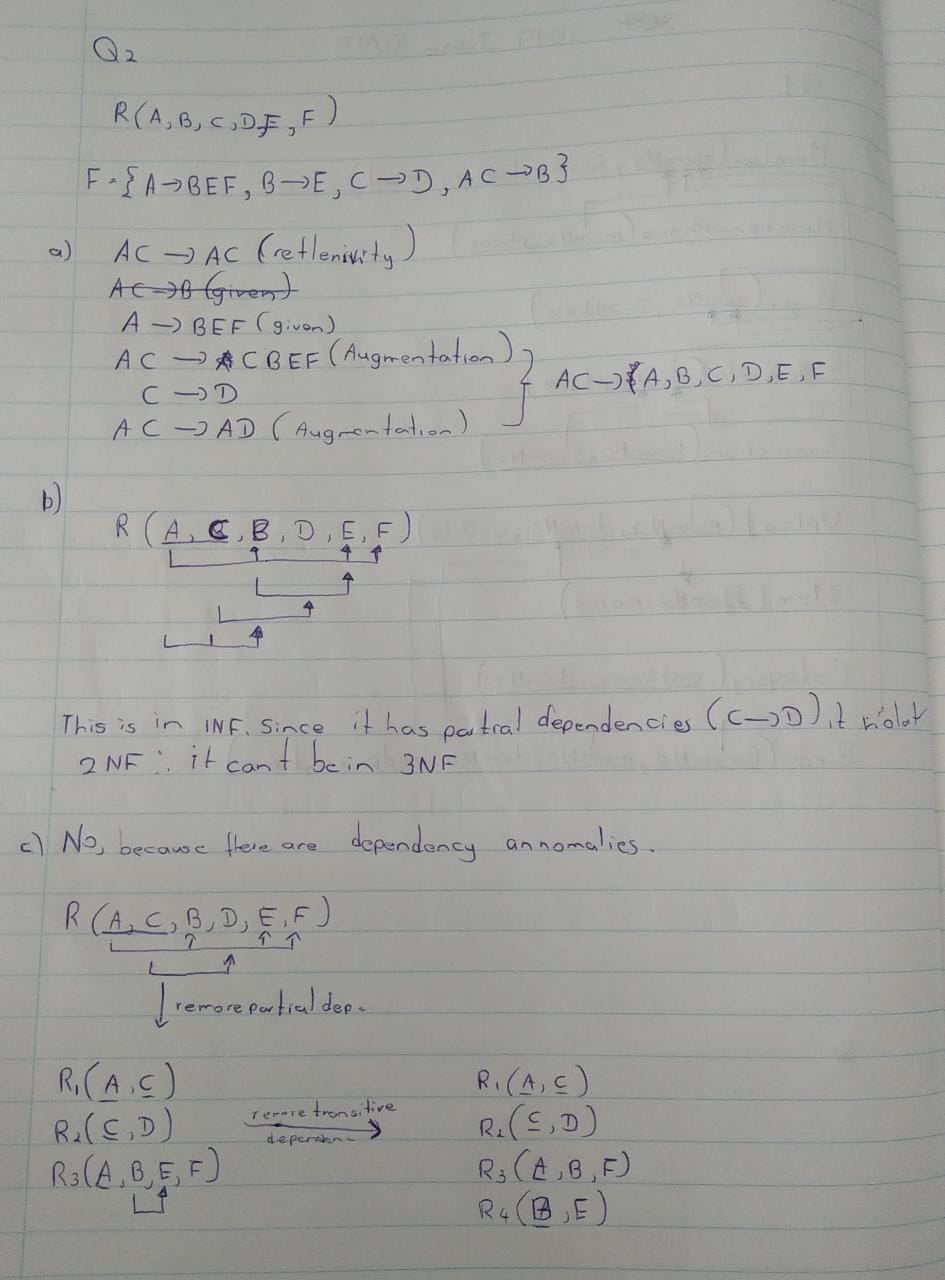 Q2
R(A, B, C, D, E, F)
F = { A → BEF, B → E, C → D, AC → B }
a) AC → AC (reflenivity)
AC → B (given)
A → BEF (given)
AC → CBEF (Augmentation)
C → D
AC → AD (Augmentation)
AC → A, B, C, D, E, F
b)
R (A, C, B, D, E, F)
This is in 1NF. Since it has partial dependencies (C → D), it violat
2NF ∴ it can't be in 3NF
c) No, because there are dependency annomalies.
R (A, C, B, D, E, F)
remove partial dep.
R1(A, C)
R2(C, D)
R3(A, B, E, F)
remove transitive
dependen
R1(A, C)
R2(C, D)
R3(A, B, F)
R4(B, E)